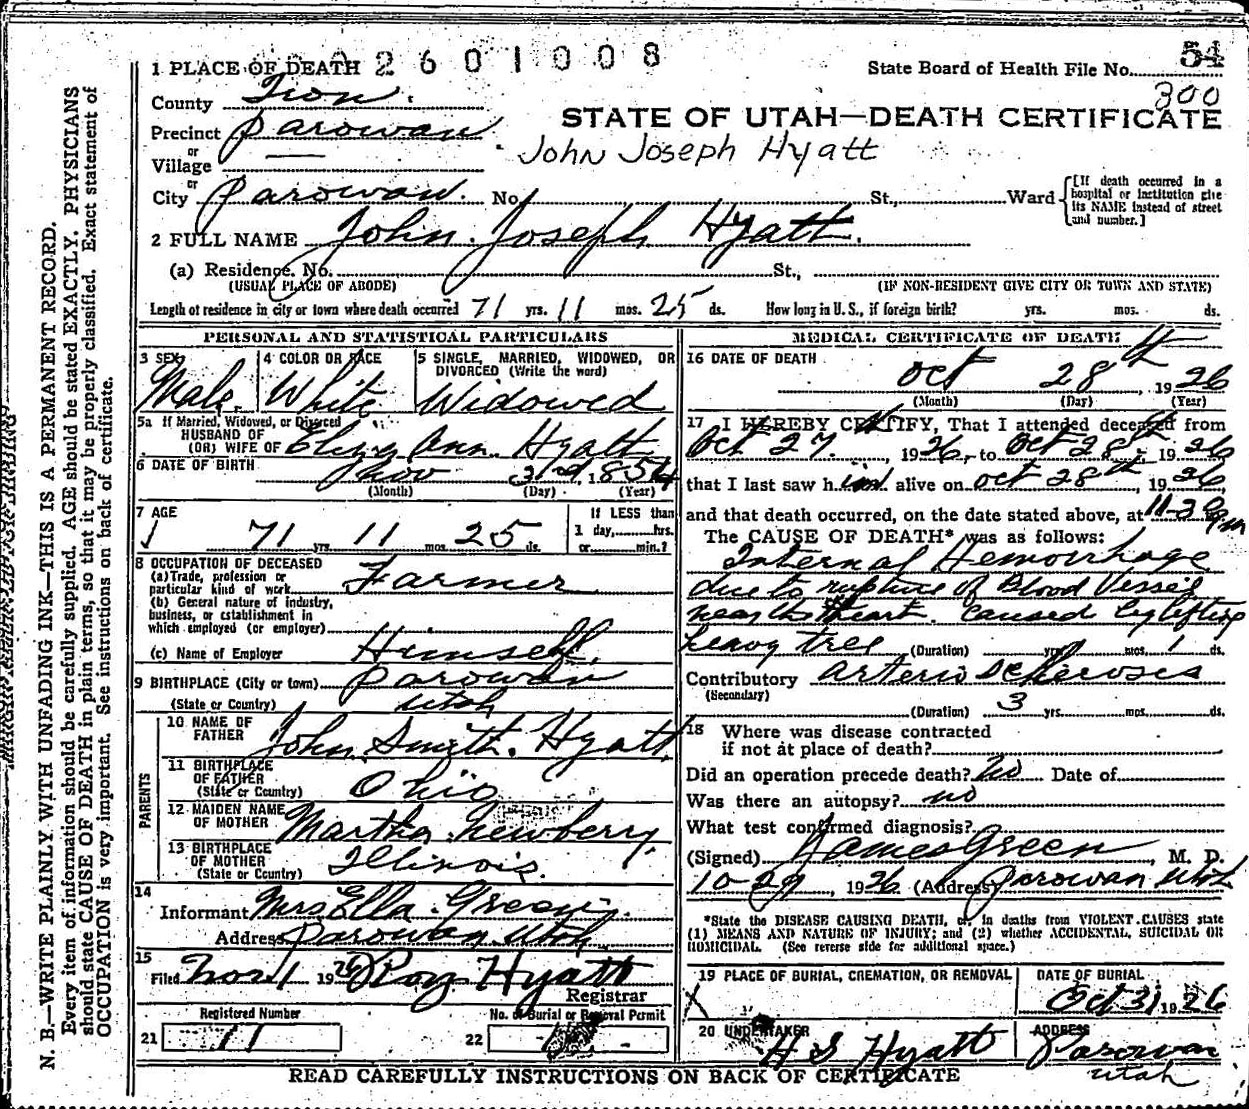 2601008
54
1 PLACE OF DEATH
State Board of Health File No.
300
County Iron.
STATE OF UTAH—DEATH CERTIFICATE
Precinct Parowan
John Joseph Hyatt
or
Village —
or
City Parowan. No. St., Ward
[If death occurred in a hospital or institution give its NAME instead of street and number.]
2 FULL NAME John Joseph Hyatt.
(a) Residence. No. St.,
(USUAL PLACE OF ABODE) (IF NON-RESIDENT GIVE CITY OR TOWN AND STATE)
Length of residence in city or town where death occurred 71 yrs. 11 mos. 25 ds. How long in U. S., if foreign birth? yrs. mos. ds.
PERSONAL AND STATISTICAL PARTICULARS
3 SEX Male.
4 COLOR OR RACE White
5 SINGLE, MARRIED, WIDOWED, OR DIVORCED (Write the word) Widowed
5a If Married, Widowed, or Divorced
HUSBAND OF
(OR) WIFE OF Eliza Ann Hyatt
6 DATE OF BIRTH Nov 3rd, 1854
(Month) (Day) (Year)
7 AGE
71 yrs. 11 mos. 25 ds.
If LESS than 1 day, hrs. or min.?
8 OCCUPATION OF DECEASED
(a) Trade, profession or particular kind of work Farmer
(b) General nature of industry, business, or establishment in which employed (or employer)
(c) Name of Employer Himself.
9 BIRTHPLACE (City or town) Parowan
(State or Country) Utah
PARENTS
10 NAME OF FATHER John Smith. Hyatt
11 BIRTHPLACE OF FATHER (State or Country) Ohio
12 MAIDEN NAME OF MOTHER Martha Newberry.
13 BIRTHPLACE OF MOTHER (State or Country) Illinois.
14
Informant Mrs Ella Green.
Address Parowan Utah
15
Filed Nov 1 1926 Roy Hyatt
Registrar
Registered Number
21 11
No. of Burial or Removal Permit
22
MEDICAL CERTIFICATE OF DEATH
16 DATE OF DEATH
Oct 28th 1926
(Month) (Day) (Year)
17 I HEREBY CERTIFY, That I attended deceased from
Oct 27. 1926, to Oct 28th 1926
that I last saw him alive on Oct 28th, 1926
and that death occurred, on the date stated above, at
The CAUSE OF DEATH* was as follows:
Internal Hemorrhage
due to rupture of Blood Vessel
near the Heart. Caused by lifting
heavy tree (Duration) yrs. mos. 1 ds.
Contributory Arterio Schlerosis
(Secondary)
(Duration) 3 yrs. mos. ds.
18 Where was disease contracted
if not at place of death?
Did an operation precede death? No Date of
Was there an autopsy? no
What test confirmed diagnosis?
(Signed) James Green, M. D.
10-29, 1926 (Address) Parowan Utah
*State the DISEASE CAUSING DEATH, or, in deaths from VIOLENT CAUSES state
(1) MEANS AND NATURE OF INJURY; and (2) whether ACCIDENTAL, SUICIDAL OR
HOMICIDAL. (See reverse side for additional space.)
19 PLACE OF BURIAL, CREMATION, OR REMOVAL
X
DATE OF BURIAL
Oct 31 1926
20 UNDERTAKER
H S Hyatt
ADDRESS
Parowan
Utah
READ CAREFULLY INSTRUCTIONS ON BACK OF CERTIFICATE
N. B.—WRITE PLAINLY WITH UNFADING INK—THIS IS A PERMANENT RECORD.
Every item of information should be carefully supplied. AGE should be stated EXACTLY. PHYSICIANS
should state CAUSE OF DEATH in plain terms, so that it may be properly classified. Exact statement of
OCCUPATION is very important. See instructions on back of certificate.